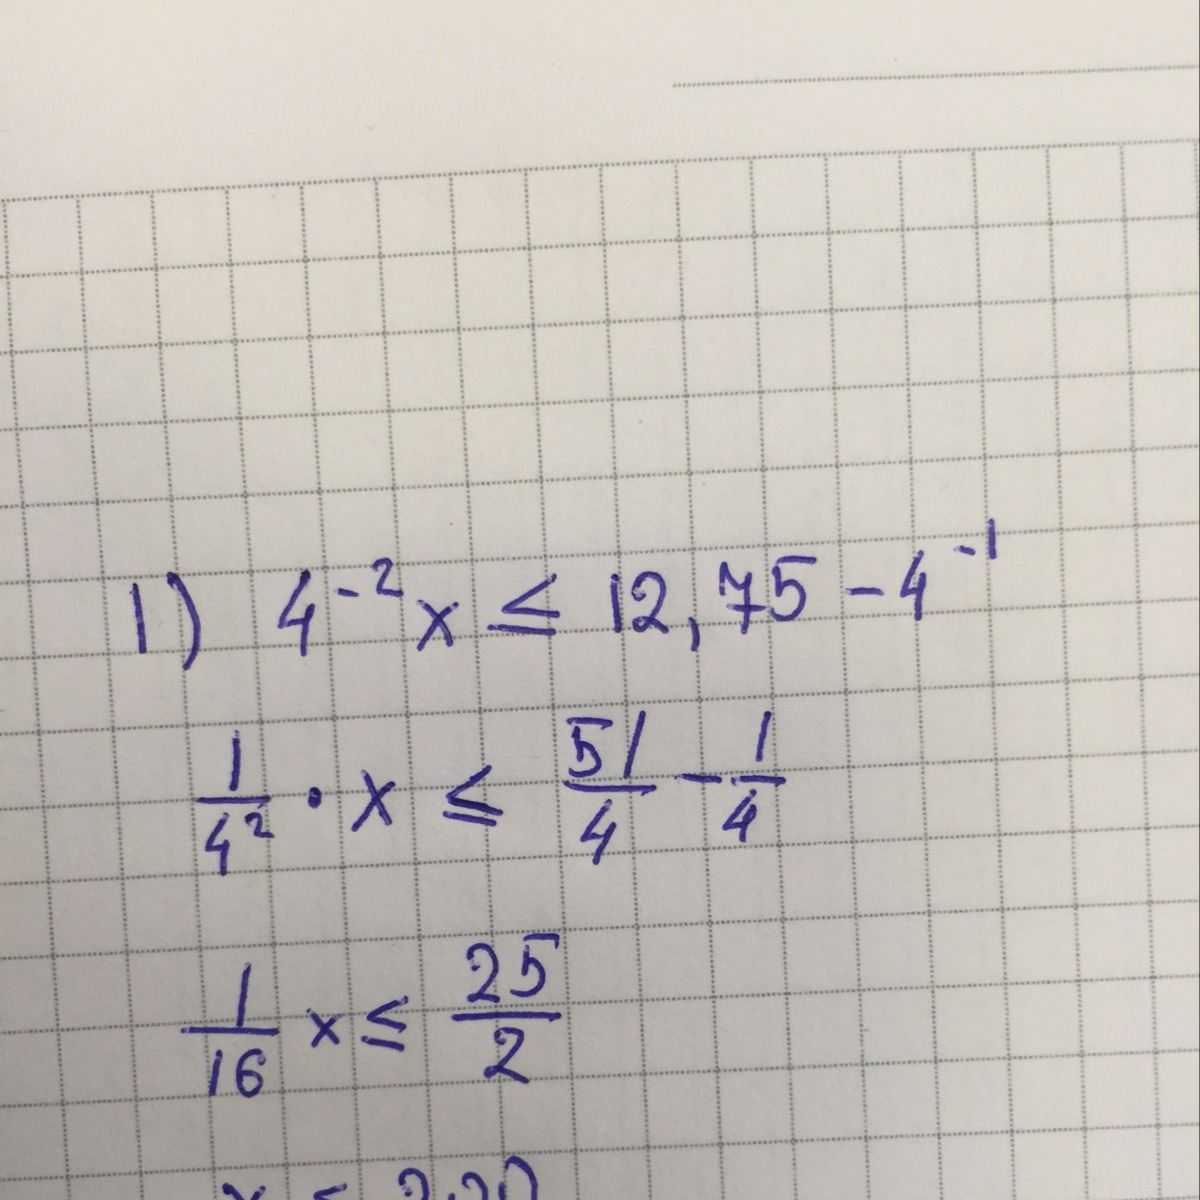 1) 4⁻²x ≤ 12,75 − 4⁻¹
1/4² · x ≤ 51/4 − 1/4
1/16 x ≤ 25/2
x ≤